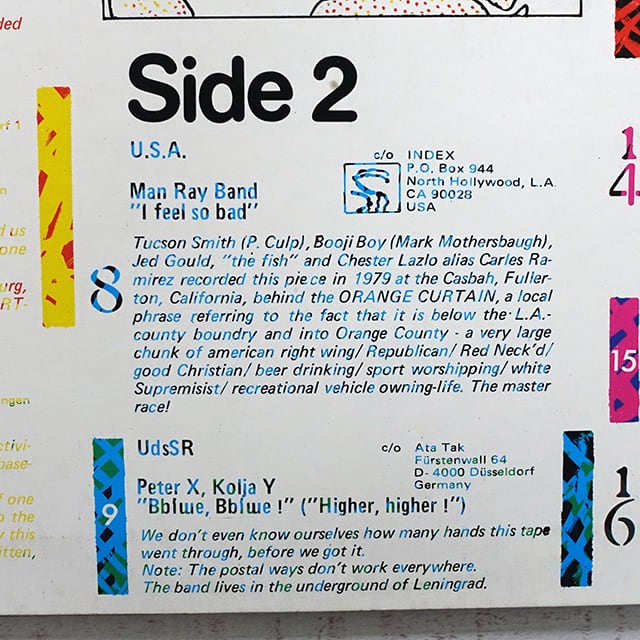 ded
Side 2
rf 1
n
d us
one
urg,
RT-
ngen
ctivi-
base-
of one
o the
y this
itten,
U.S.A.
c/o INDEX
P.O. Box 944
North Hollywood, L.A.
CA 90028
USA
Man Ray Band
"I feel so bad"
8
Tucson Smith (P. Culp), Booji Boy (Mark Mothersbaugh),
Jed Gould, "the fish" and Chester Lazlo alias Carles Ra-
mirez recorded this piece in 1979 at the Casbah, Fuller-
ton, California, behind the ORANGE CURTAIN, a local
phrase referring to the fact that it is below the L.A.-
county boundry and into Orange County - a very large
chunk of american right wing/ Republican/ Red Neck'd/
good Christian/ beer drinking/ sport worshipping/ white
Supremisist/ recreational vehicle owning-life. The master
race!
UdsSR
c/o Ata Tak
Fürstenwall 64
D- 4000 Düsseldorf
Germany
9
Peter X, Kolja Y
"Bbłwe, Bbłwe !" ("Higher, higher !")
We don't even know ourselves how many hands this tape
went through, before we got it.
Note: The postal ways don't work everywhere.
The band lives in the underground of Leningrad.
14
15
16